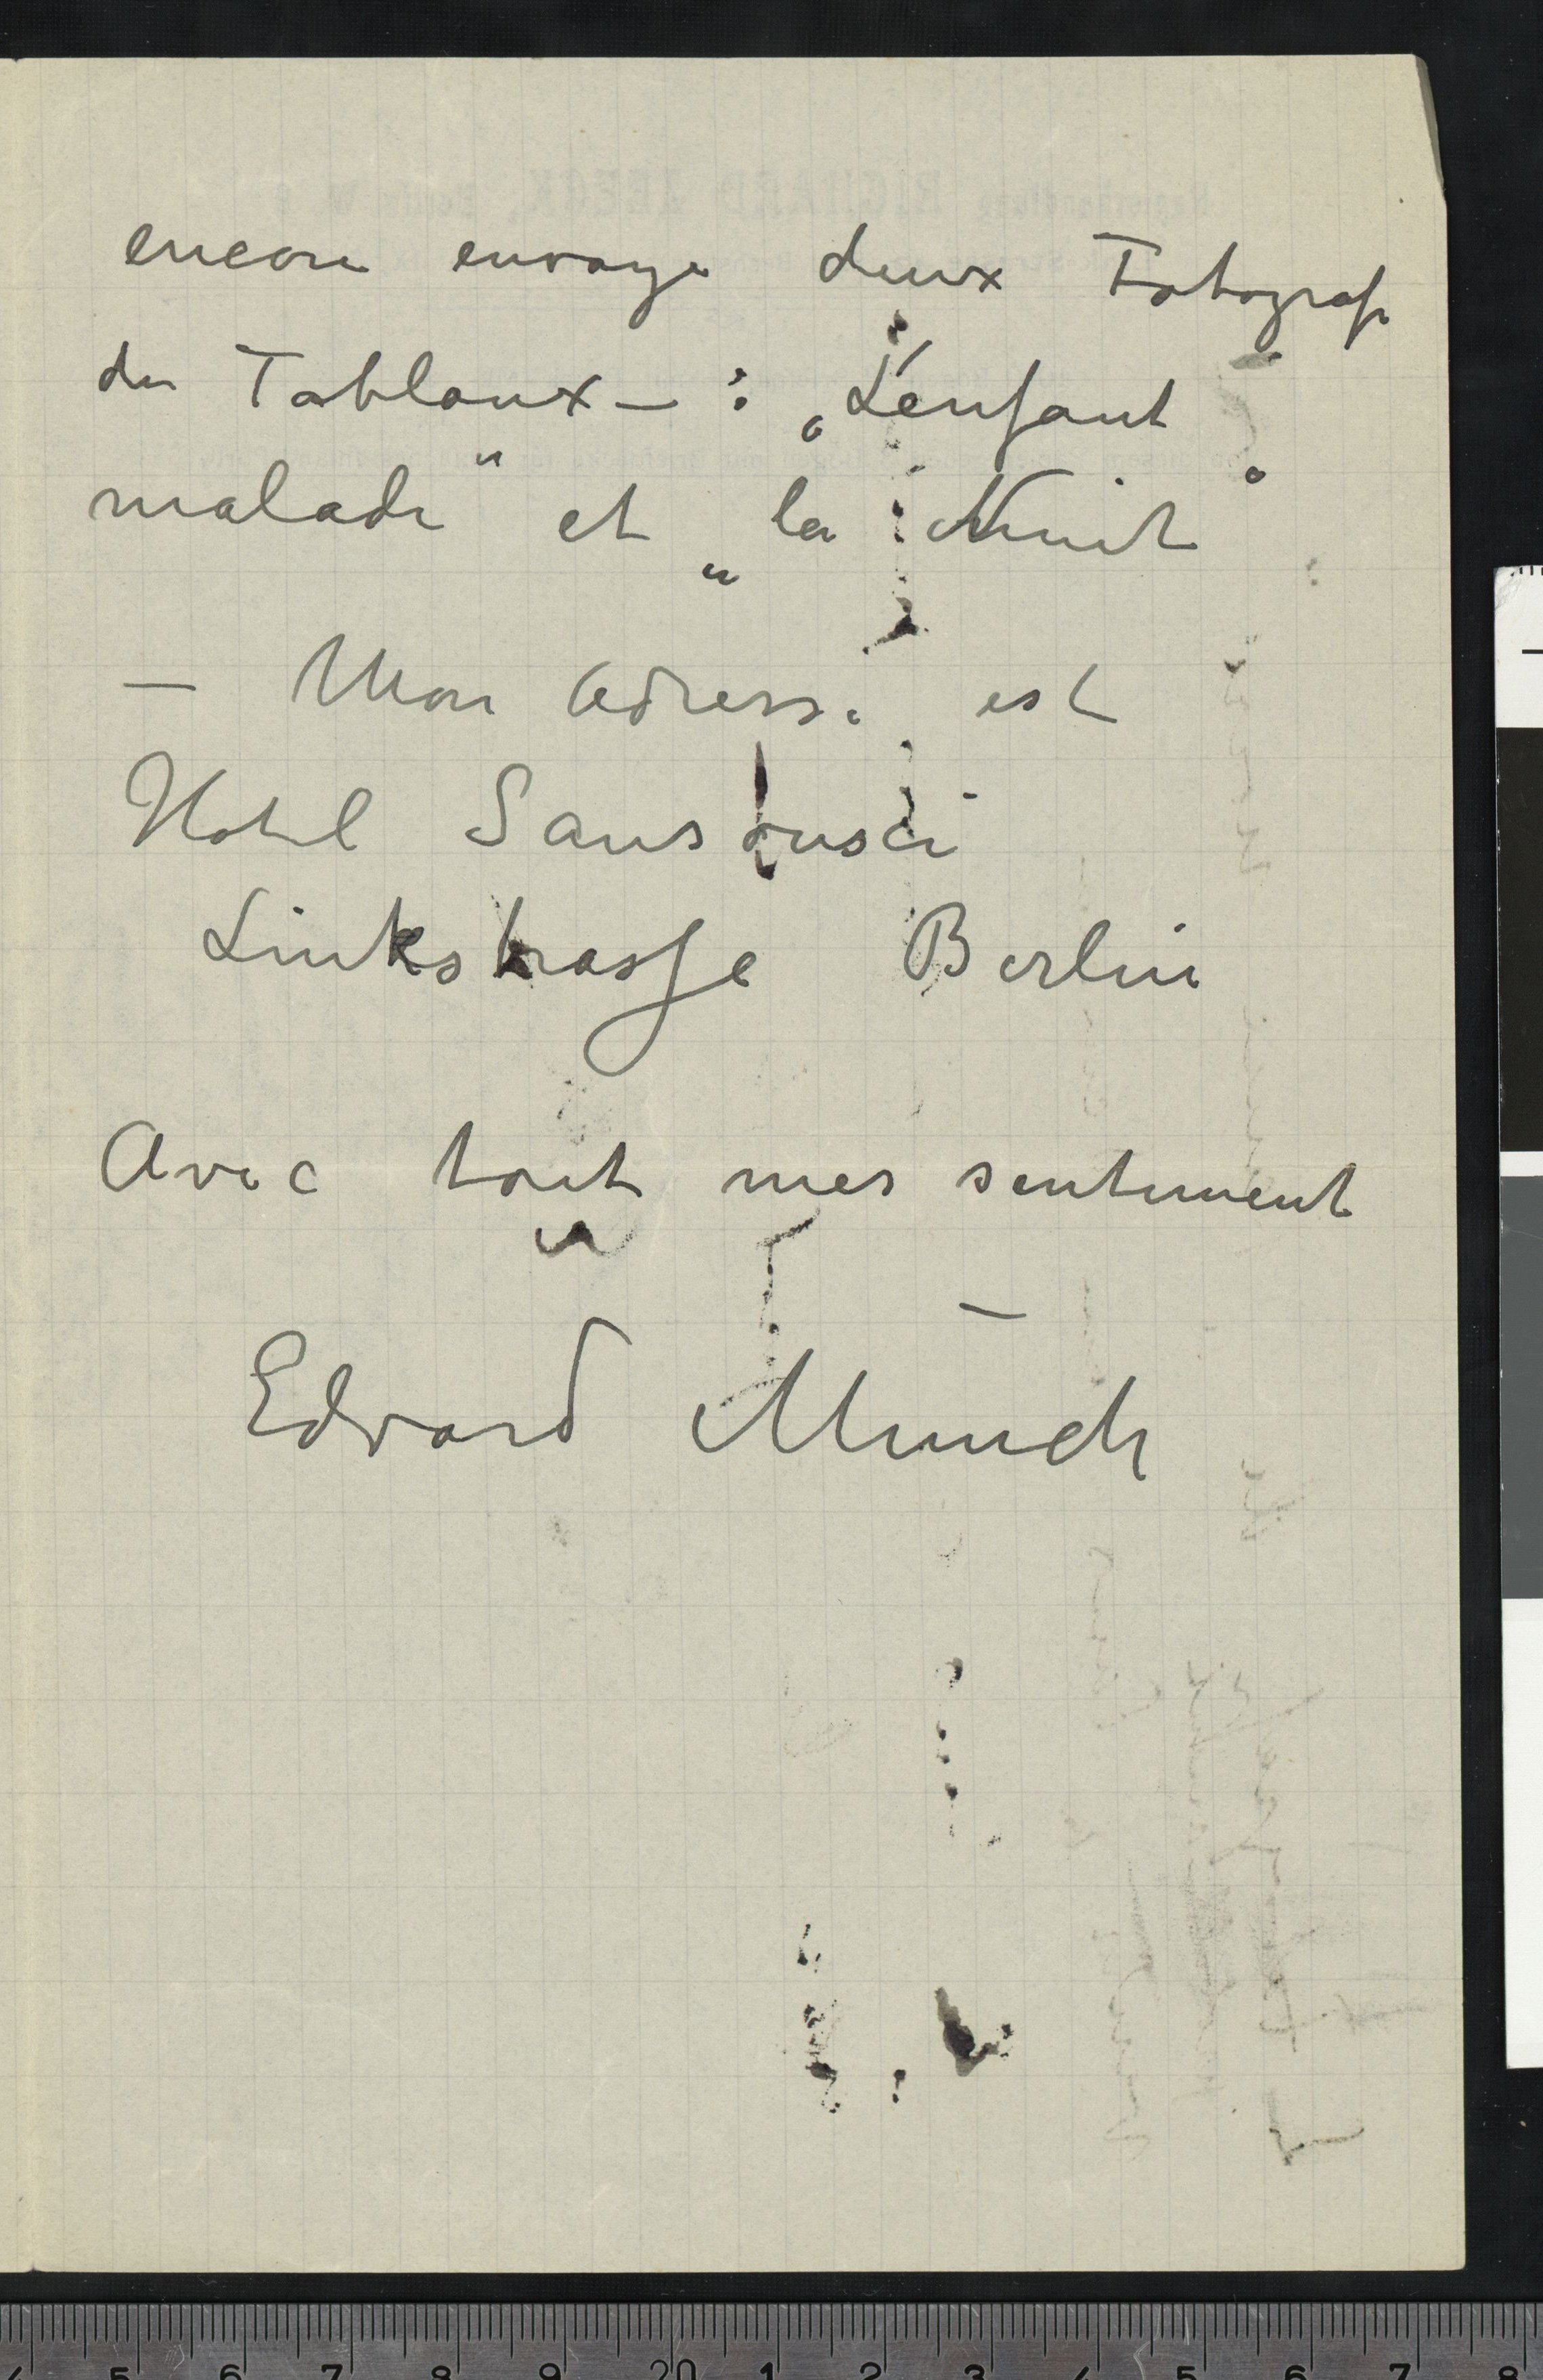 encore envoye deux Fotografi
de Tableaux – : „L'enfant
malade" et „la Nuit"
– Mon adresse est
Hotel Sansousci
Linkstrasse Berlin
Avec tout mes sentiment
–
Edvard Munch